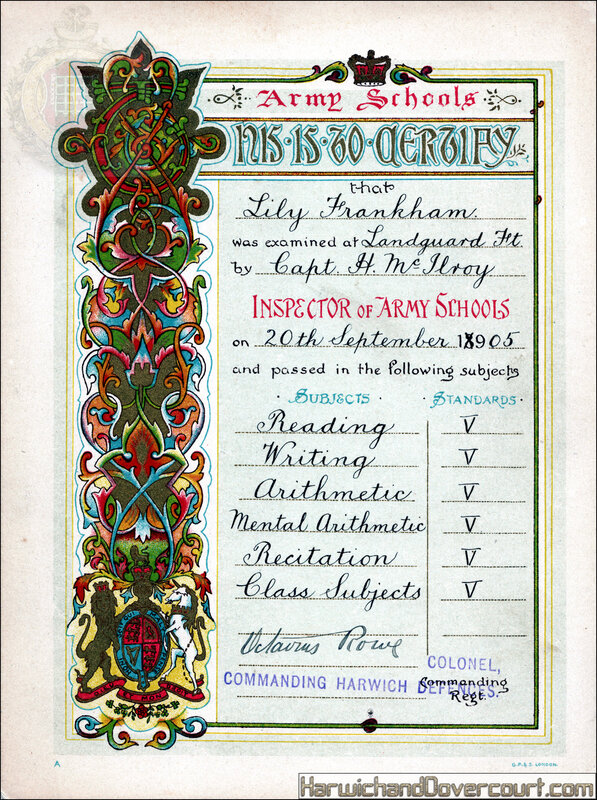 Army Schools
THIS · IS · TO · CERTIFY
that
Lily Frankham.
was examined at Landguard Ft.
by Capt. H. McIlroy
INSPECTOR OF ARMY SCHOOLS
on 20th September 1905
and passed in the following subjects
· SUBJECTS · STANDARDS ·
Reading V
Writing V
Arithmetic V
Mental Arithmetic V
Recitation V
Class Subjects V
Octavius Rowe
COLONEL,
COMMANDING HARWICH DEFENCES.
Commanding
Regt.
DIEU ET MON DROIT
A
G.P.& S. LONDON.
HarwichandDovercourt.com